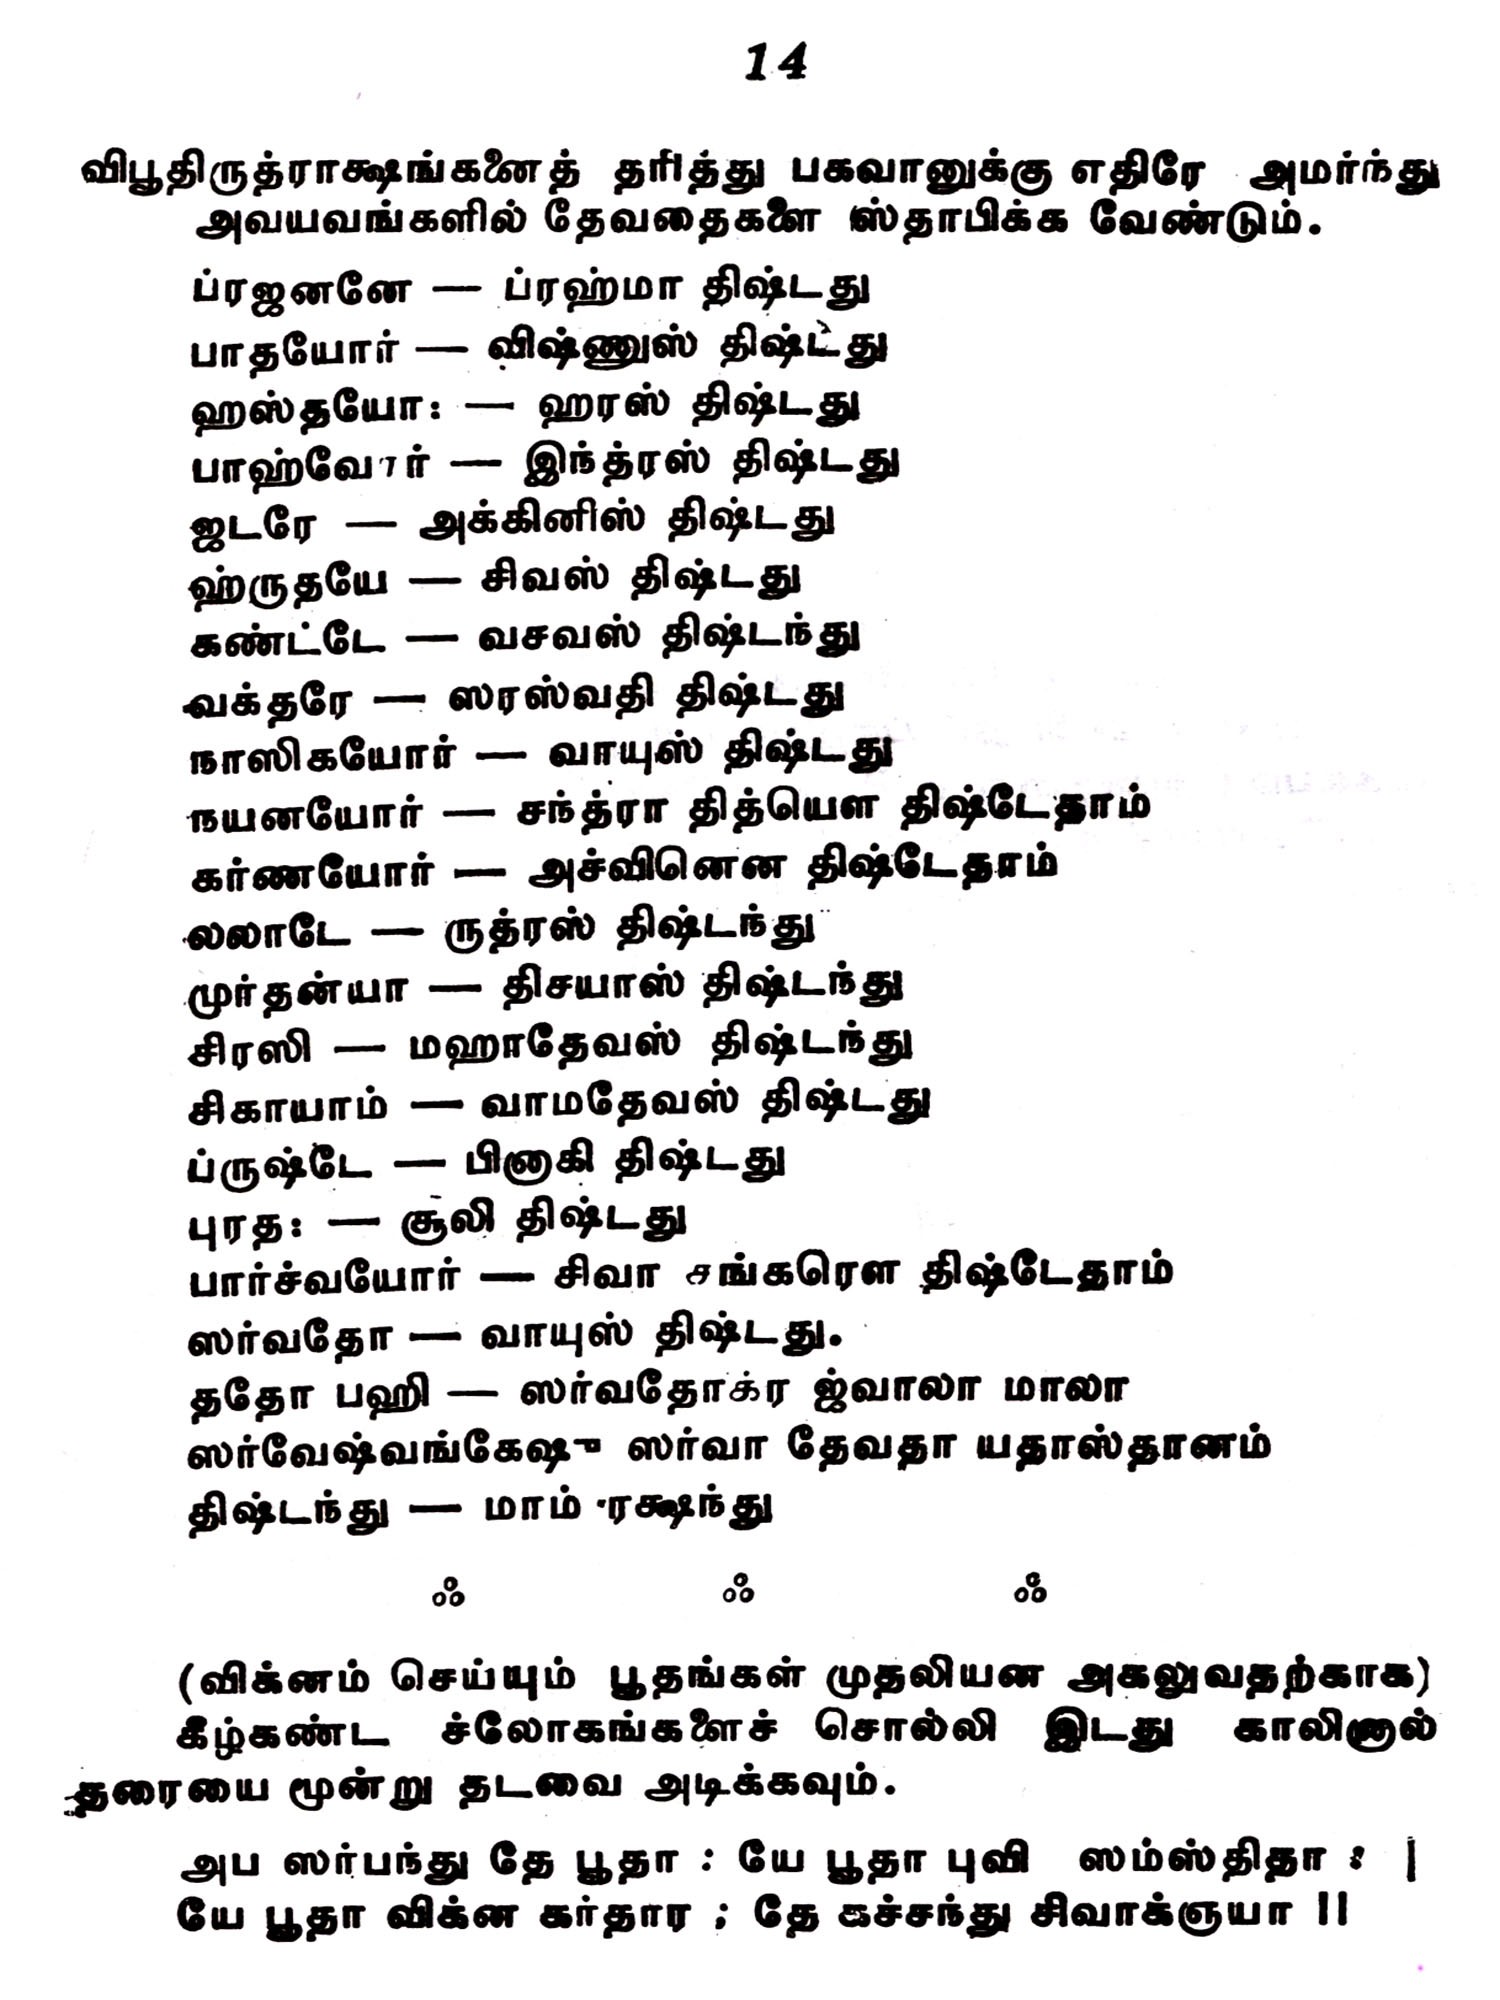 14
விபூதிருத்ராக்ஷங்களைத் தரித்து பகவானுக்கு எதிரே அமர்ந்து
அவயவங்களில் தேவதைகளை ஸ்தாபிக்க வேண்டும்.
ப்ரஜனனே — ப்ரஹ்மா திஷ்டது
பாதயோர் — விஷ்ணுஸ் திஷ்டது
ஹஸ்தயோ: — ஹரஸ் திஷ்டது
பாஹ்வோர் — இந்த்ரஸ் திஷ்டது
ஜடரே — அக்கினிஸ் திஷ்டது
ஹ்ருதயே — சிவஸ் திஷ்டது
கண்ட்டே — வசவஸ் திஷ்டந்து
வக்தரே — ஸரஸ்வதி திஷ்டது
நாஸிகயோர் — வாயுஸ் திஷ்டது
நயனயோர் — சந்த்ரா தித்யௌ திஷ்டேதாம்
கர்ணயோர் — அச்வினென திஷ்டேதாம்
லலாடே — ருத்ரஸ் திஷ்டந்து
முர்தன்யா — திசயாஸ் திஷ்டந்து
சிரஸி — மஹாதேவஸ் திஷ்டந்து
சிகாயாம் — வாமதேவஸ் திஷ்டது
ப்ருஷ்டே — பினாகி திஷ்டது
புரத: — சூலி திஷ்டது
பார்ச்வயோர் — சிவா சங்கரௌ திஷ்டேதாம்
ஸர்வதோ — வாயுஸ் திஷ்டது.
ததோ பஹி — ஸர்வதோக்ர ஜ்வாலா மாலா
ஸர்வேஷ்வங்கேஷு ஸர்வா தேவதா யதாஸ்தானம்
திஷ்டந்து — மாம் ரக்ஷந்து
ஃ ஃ ஃ
(விக்னம் செய்யும் பூதங்கள் முதலியன அகலுவதற்காக)
கீழ்கண்ட ச்லோகங்களைச் சொல்லி இடது காலினால்
தரையை மூன்று தடவை அடிக்கவும்.
அப ஸர்பந்து தே பூதா : யே பூதா புவி ஸம்ஸ்திதா : |
யே பூதா விக்ன கர்தார ; தே கச்சந்து சிவாக்ஞயா ||